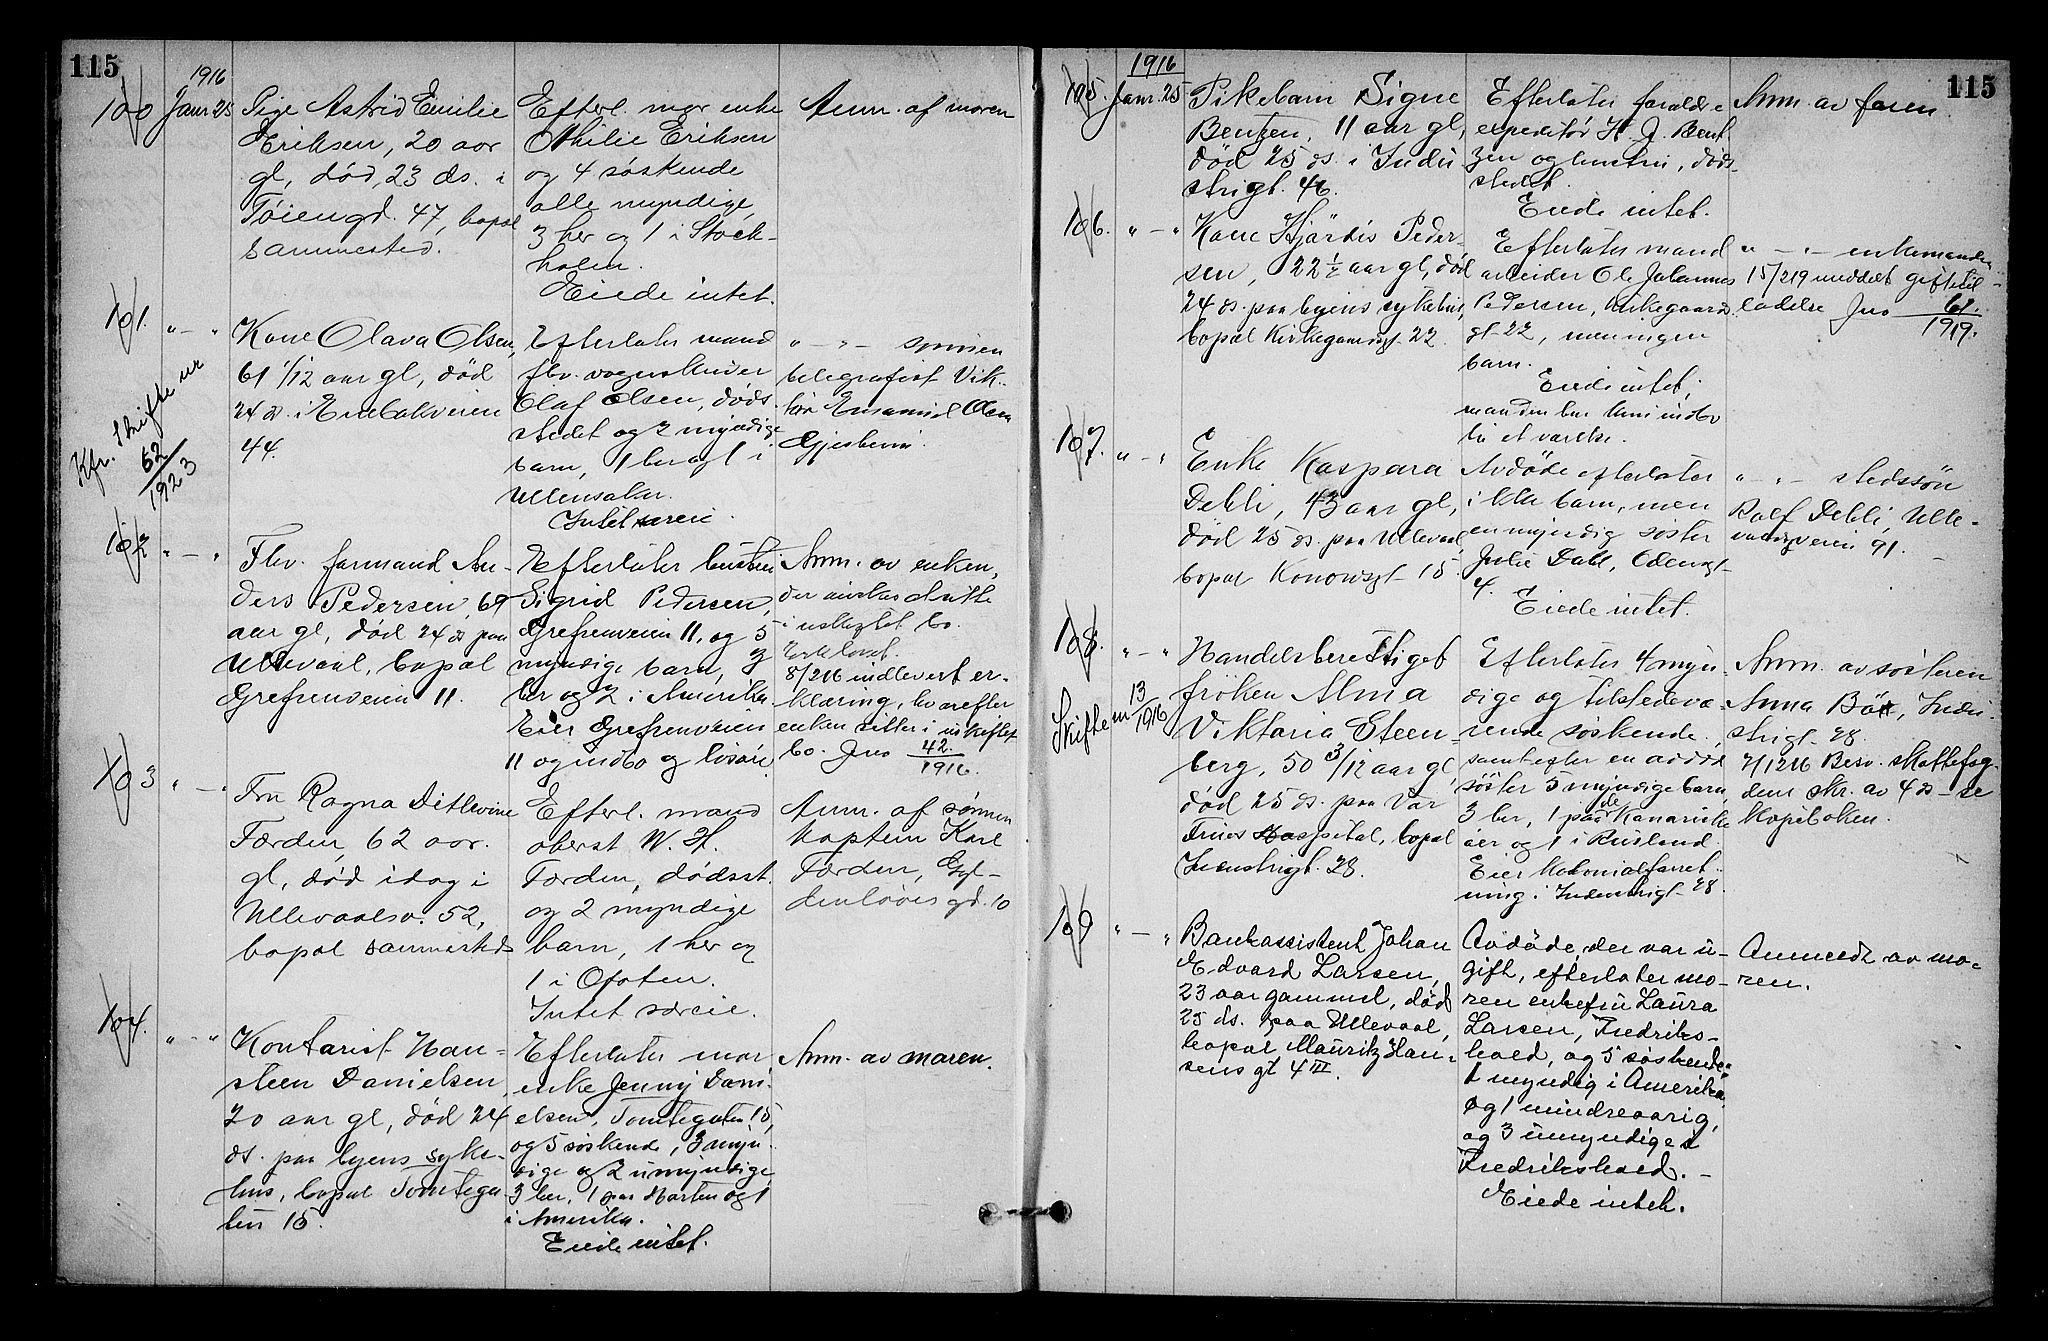 115
1916
100 Janr. 25 Pige Astrid Emilie
Eriksen, 20 aar
gl, død, 23 ds. i
Tøiengd. 47, bopæl
sammested.
Efterl. mor enke
Othilie Eriksen
og 4 søskende
alle myndige,
3 her og 1 i Stock-
holm.
Eiede intet.
Anm. af moren
101. " — "
Kfr. Skifte nr
62
1923
Kone Olava Olsen,
61 1/12 aar gl, død
24 ds. i Enebakveien
44.
Efterlater mand
fhv. vognskriver
Olaf Olsen, døds-
stedet og 2 myndige
barn, 1 her og 1 i
Ullensaker.
Intet særeie.
" — " — sønnen
telegrafist Vik-
tor Emanuel Olsen
Gjesheim.
102 " — "
Fhv. formand An-
ders Pedersen, 69
aar gl, død 24 ds paa
Ullevaal, bopæl
Grefsenveien 11.
Efterlater hustru
Sigrid Pedersen,
Grefsenveien 11, og 5
myndige barn, 3
her og 2 i Amerika
Eier Grefsenveien
11 og indbo og løsøre
Anm. av enken,
der ønskes hensitte
i uskiftet bo.
8/216 indlevert er-
klæring, hvorefter
enken sitter i uskiftet
bo. Jno 42.
1916.
103 " — "
Fru Ragna Ditlevine
Førden, 62 aar.
gl, død idag i
Ullevaalsv. 52,
bopæl sammesteds
Efterl. mand
oberst W. H.
Førden, dødsst.
og 2 myndige
barn, 1 her og
1 i Ofoten.
Intet særeie.
Anm. af sønnen
kaptein Karl
Førden, Gyl-
denløves gd. 10
104. " — "
Kontorist Han-
steen Danielsen
20 aar gl, død 24
ds. paa byens syke-
hus, bopæl Tomtega-
ten 15.
Efterlater mor
enke Jenny Dani-
elsen, Tomtegaten 15,
og 5 søskend, 3 myn-
dige og 2 umyndige
3 her, 1 paa Horten og 1
i Amerika.
Eiede intet.
Anm. av moren.
115
1916
105. Janr. 25 Pikebarn Signe
Bentzen, 11 aar gl,
død 25 ds. i Indu
strigt. 46.
Efterlater forældre
expeditør H. J. Bent
zen og hustru, døds-
stedet.
Eiede intet.
Anm. av faren
106. " — "
Kone Hjärdis Peder-
sen, 22 ½ aar gl, død
24 ds. paa byens sykehus,
bopæl Kirkegaardsgt 22.
Efterlater mand
arbeider Ole Johannes
Pedersen, Kirkegaards-
gt 22, men ingen
barn.
Eiede intet;
manden har kun indbo
til et værelse.
" — " — enkemanden
15/219 meddelt giftetil-
ladelse Jno 61.
1919.
107. " — "
Enke Kaspara
Debli, 43 aar gl,
død 25 ds. paa Ullevaal,
bopæl Konowsgt 15.
Avdøde efterlater
ikke barn, men
en myndig søster
Julie Dahl, Odensgt
4.
Eiede intet.
" — " — stedssøn
Rolf Debli, Ulle-
vaalsveien 91. —
108. " — "
Skifte nr 13
1916
Handelsberettiget
frøken Alma
Viktoria Steen-
berg, 50 3/12 aar gl,
død 25 ds. paa Vor
Frues Hospital, bopæl
Industrigt. 28.
Efterlater 4 myn-
dige og tilstedevæ-
rende søskende,
samt efter en avdød
søster 5 myndige barn,
3 her, 1 paa de Kanariske
øer og 1 i Rusland.
Eier Kolonialforret-
ning i Industrigt 28.
Anm. av søsteren
Anna Bø, Indu-
strigt 28.
7/1216 Besv. skattefog-
dens skr. av 4 ds – se
kopiboken.
109 " — "
Bankassistent Johan
Edvard Larsen,
23 aar gammel, død
25 ds. paa Ullevaal,
bopæl Mauritz Han-
sens gt 4 III.
Avdøde, der var u-
gift, efterlater mo-
ren enkefru Laura
Larsen, Fredriks-
hald, og 5 søskende:
1 myndig i Amerika
og 1 mindreaarig,
og 3 umyndige i
Fredrikshald. —
Eiede intet.
Anmeldt av mo-
ren.